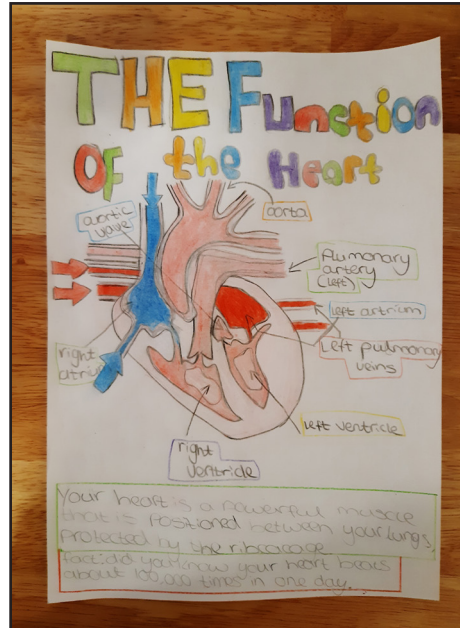 THE Function
OF the Heart
aortic
valve
aorta
Pulmonary
artery
(left)
left artrium
right
atrium
Left pulmonary
veins
left ventricle
right
ventricle
Your heart is a powerful muscle
that is Positioned between your lungs,
Protected by the ribcage
fact: did you know your heart beats
about 100,000 times in one day...